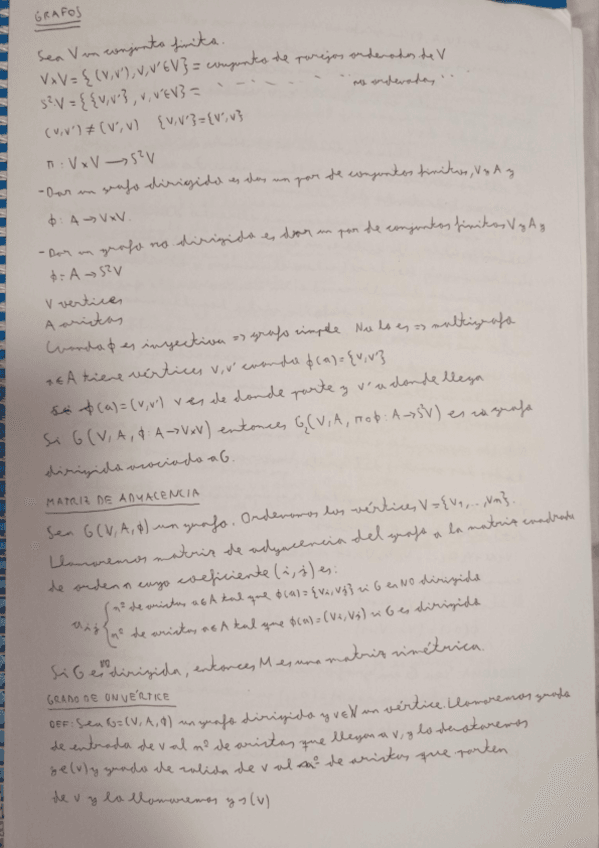 GRAFOS
Sea V un conjunto finito.
VxV = {(v,v'), v,v'∈V} = conjunto de parejas ordenadas de V
S²V = {{v,v'}, v,v'∈V} = - - - - - - " " no ordenadas " "
(v,v') ≠ (v',v) {v,v'} = {v',v}
π: VxV → S²V
- Dar un grafo dirigido es dar un par de conjuntos finitos, V y A y
ϕ: A → VxV.
- Dar un grafo no dirigido es dar un par de conjuntos finitos V y A y
ϕ: A → S²V
V vertices
A aristas
Cuando ϕ es inyectiva => grafo simple No lo es => multigrafo
a∈A tiene vértices v,v' cuando ϕ(a)={v,v'}
Si ϕ(a)=(v,v') v es de donde parte y v' a donde llega
Si G(V,A,ϕ:A→VxV) entonces G(V,A,π∘ϕ:A→S²V) es grafo
dirigido asociado a G.
MATRIZ DE ADYACENCIA
Sea G(V,A,ϕ) un grafo. Ordenamos los vértices V={v1,..,vn}.
Llamaremos matriz de adyacencia del grafo a la matriz cuadrada
de orden n cuyo coeficiente (i,j) es:
aij { nº de aristas a∈A tal que ϕ(a)={vi,vj} si G es NO dirigido
nº de aristas a∈A tal que ϕ(a)=(vi,vj) si G es dirigido
Si G es no dirigido, entonces M es una matriz simétrica.
GRADO DE UN VÉRTICE
DEF: Sea G=(V,A,ϕ) un grafo dirigido y v∈V un vértice. Llamaremos grado
de entrada de v al nº de aristas que llegan a v, y lo denotaremos
ge(v) y grado de salida de v al nº de aristas que parten
de v y lo llamaremos gs(v)